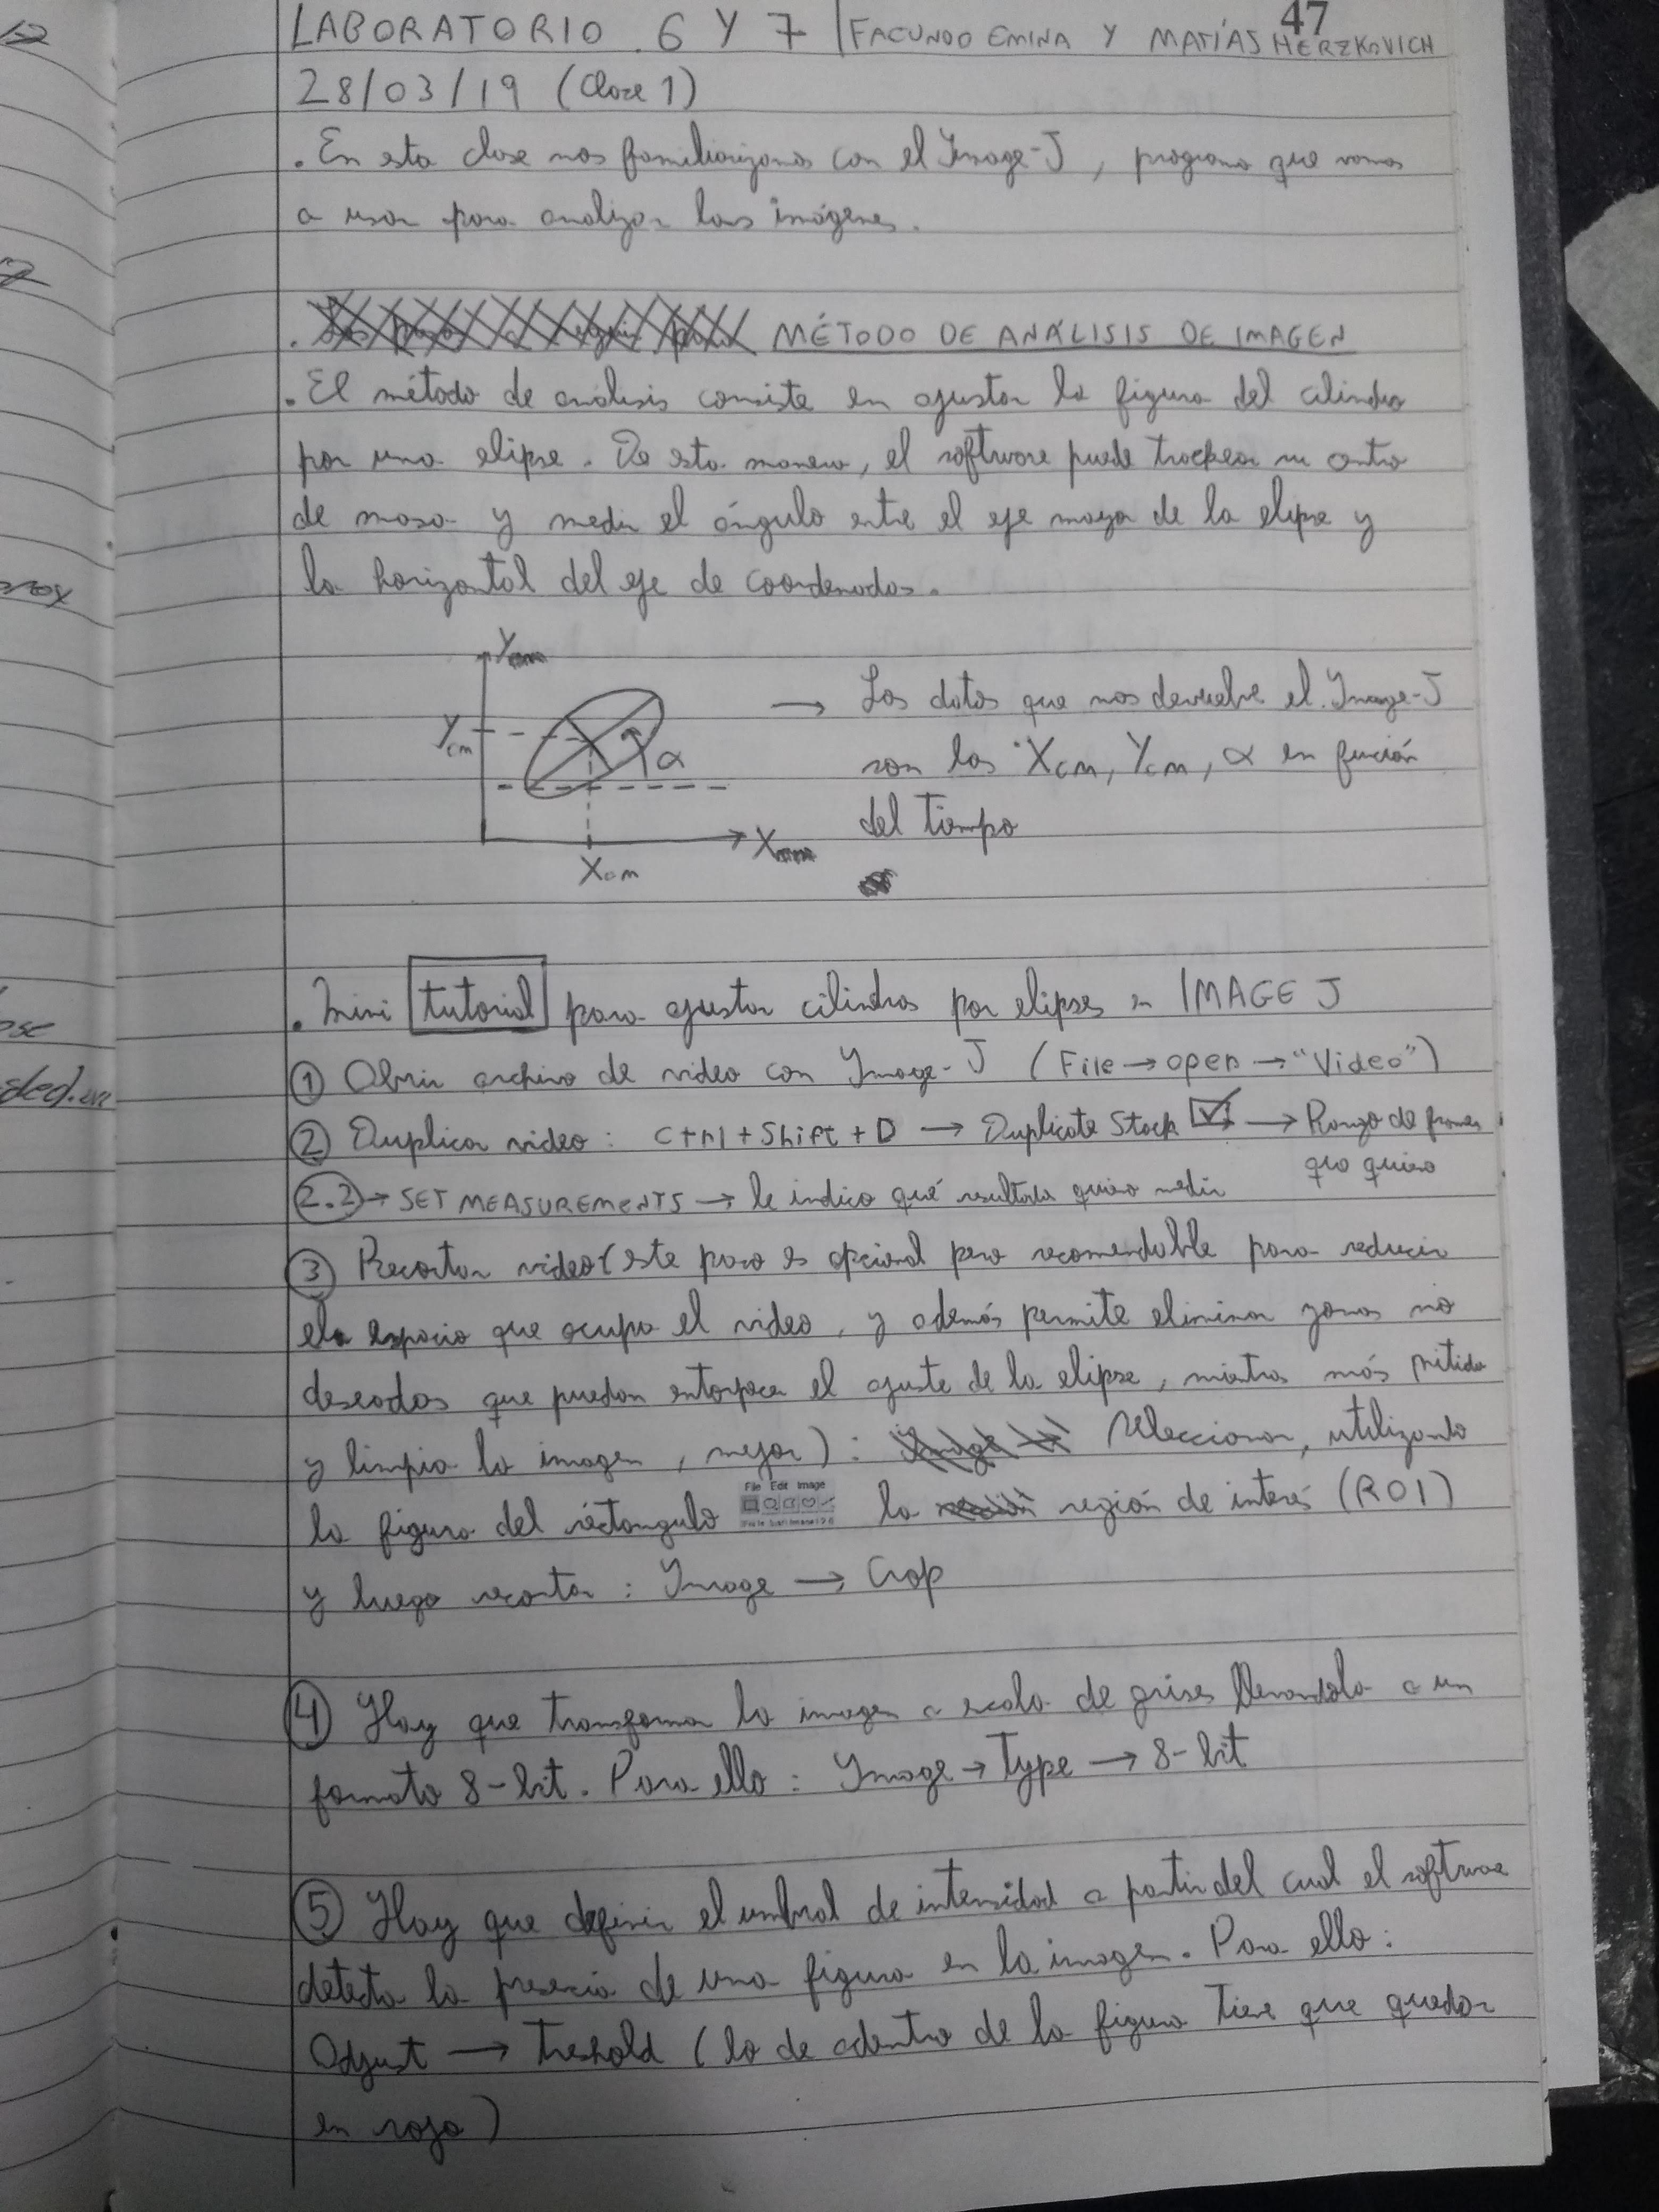 47
LABORATORIO 6 Y 7 | FACUNDO EMINA Y MATÍAS HERZKOVICH
28/03/19 (Clase 1)
. En esta clase nos familiarizamos con el Image-J, programa que vamos
a usar para analizar las imágenes.
. MÉTODO DE ANÁLISIS DE IMAGEN
. El método de análisis consiste en ajustar la figura del cilindro
por una elipse. De esta manera, el software puede trackear su centro
de masa y medir el ángulo entre el eje mayor de la elipse y
la horizontal del eje de coordenadas.
Y
Ycm
α
X
Xcm
→ Los datos que nos devuelve el Image-J
son los Xcm, Ycm, α en función
del tiempo
. Mini tutorial para ajustar cilindros por elipses en IMAGE J
① Abrir archivo de video con Image-J (File → open → "Video")
② Duplicar video: Ctrl + Shift + D → Duplicate Stack ☑ → Rango de frames
que quiero
2.2 → SET MEASUREMENTS → le indico qué resultados quiero medir
③ Recortar video (este paso es opcional pero recomendable para reducir
el espacio que ocupa el video, y además permite eliminar zonas no
deseadas que puedan entorpecer el ajuste de la elipse, mientras más nítida
y limpia la imagen, mejor): seleccionar, utilizando
File Edit Image
la figura del réctangulo la región de interés (ROI)
y luego recortar: Image → Crop
④ Hay que transformar la imagen a escala de grises llevandola a un
formato 8-bit. Para ello: Image → Type → 8-bit
⑤ Hay que definir el umbral de intensidad a partir del cual el software
detecta la presencia de una figura en la imagen. Para ello:
Adjust → Treshold (lo de adentro de la figura tiene que quedar
en rojo)